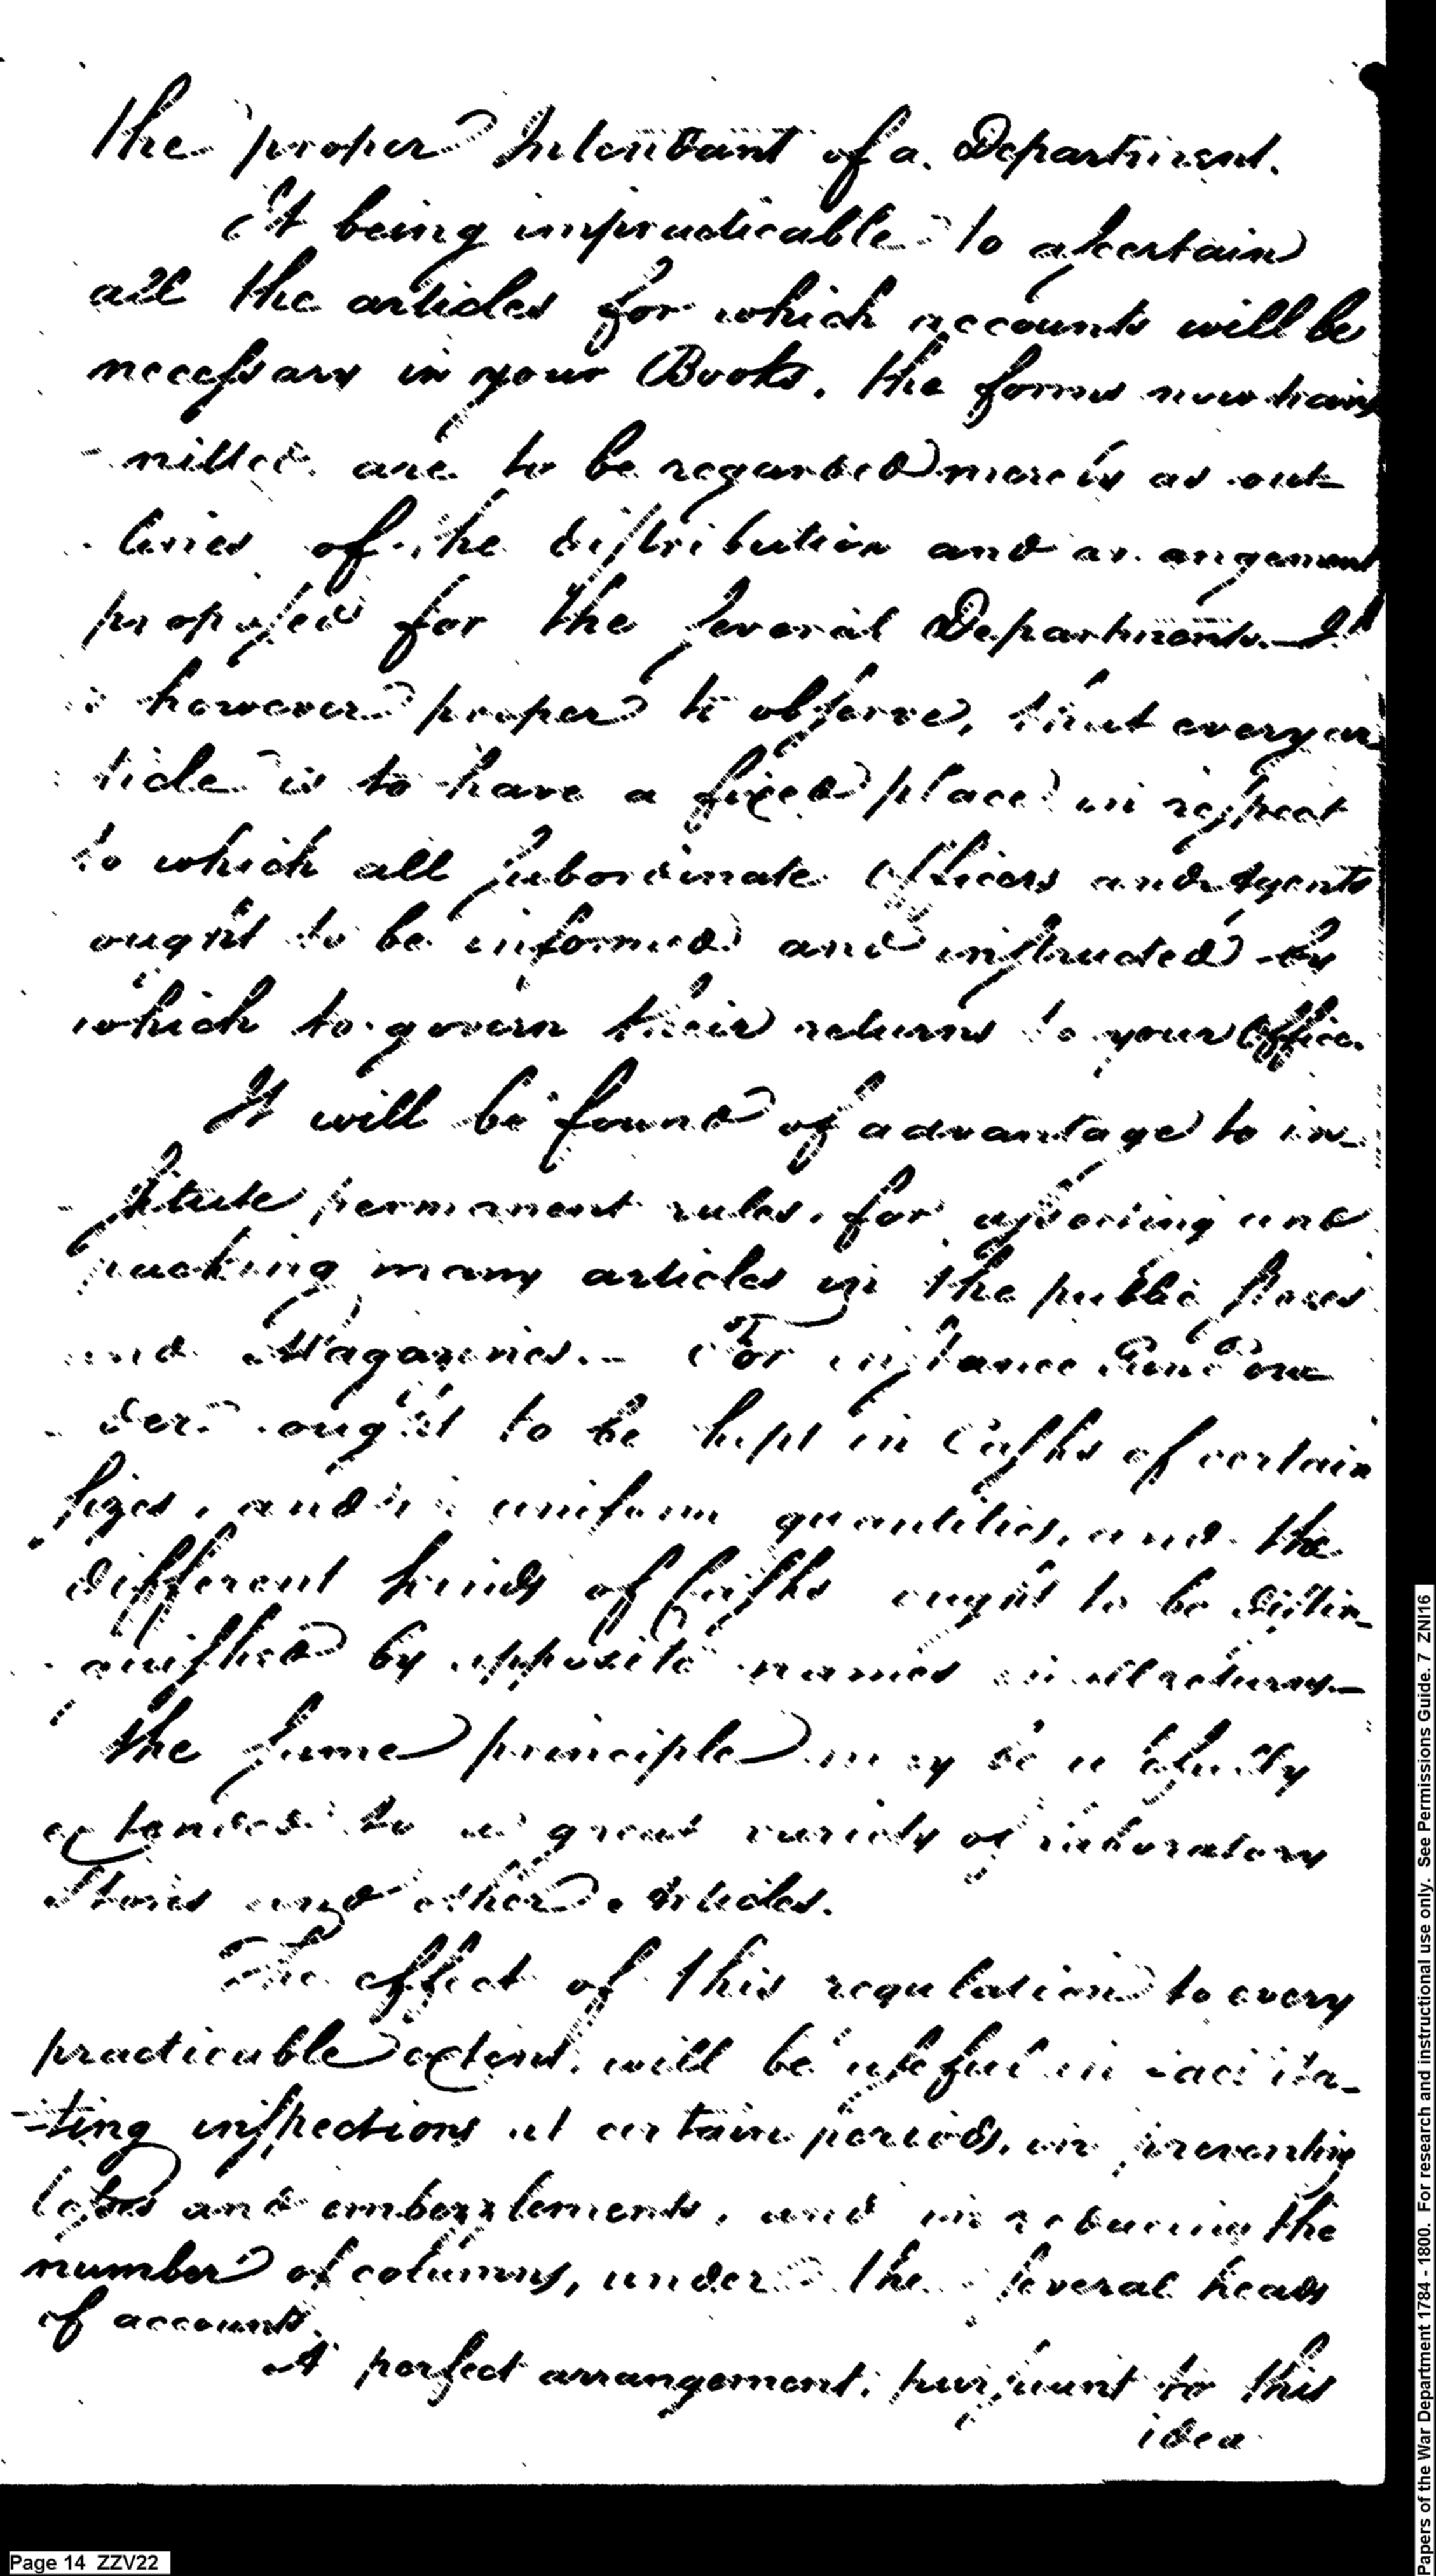 the proper Intendant of a Department.
It being impracticable to ascertain
all the articles for which accounts will be
necessary in your Books, the forms now trans
-mitted are to be regarded merely as out-
-lines of the distribution and arrangement
proposed for the several Departments.— It
is however proper to observe, that every ar
ticle is to have a fixed place in respect
to which all subordinate Officers and Agents
ought to be informed and instructed by
which to govern their returns to your Office.
It will be found of advantage to in-
-stitute permanent rules, for assorting and
packing many articles in the public stores
and Magazines.— For instance Gun Pow
-der ought to be kept in Casks of certain
sizes, and in uniform quantities, and the
different kinds of Casks ought to be distin-
-guished by apposite names in all returns.—
the same principle may be usefully
extended to a great variety of laboratory
Stores and other Articles.
The effect of this regulation to every
practicable extent, will be useful in facilita-
-ting inspections at certain periods, in preventing
losses and embezzlements, and in reducing the
number of columns, under the several heads
of accounts.
A perfect arrangement, pursuant to this
idea
Page 14 ZZV22
Papers of the War Department 1784 - 1800. For research and instructional use only. See Permissions Guide. 7 ZNI16